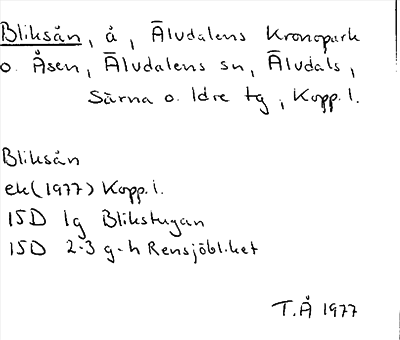 Bliksån, å, Älvdalens Kronopark
o. Åsen, Älvdalens sn, Älvdals,
Särna o. Idre tg, Kopp. l.
Bliksån
ek (1977) Kopp. l.
15D 1g Blikstugan
15D 2-3 g-h Rensjöbliket
T.Å 1977